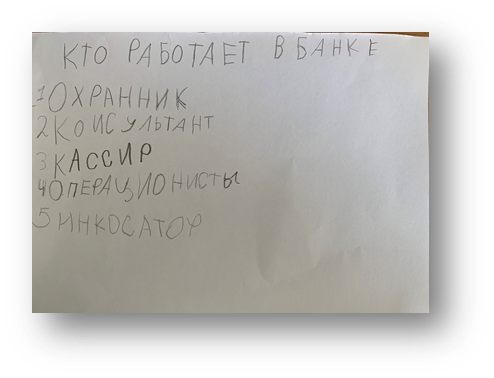 КТО РАБОТАЕТ В БАНКЕ
1 ОХРАННИК
2 КОИСУЛЬТАНТ
3 КАССИР
4 ОПЕРАЦИОНИСТЫ
5 ИНКОСАТОР